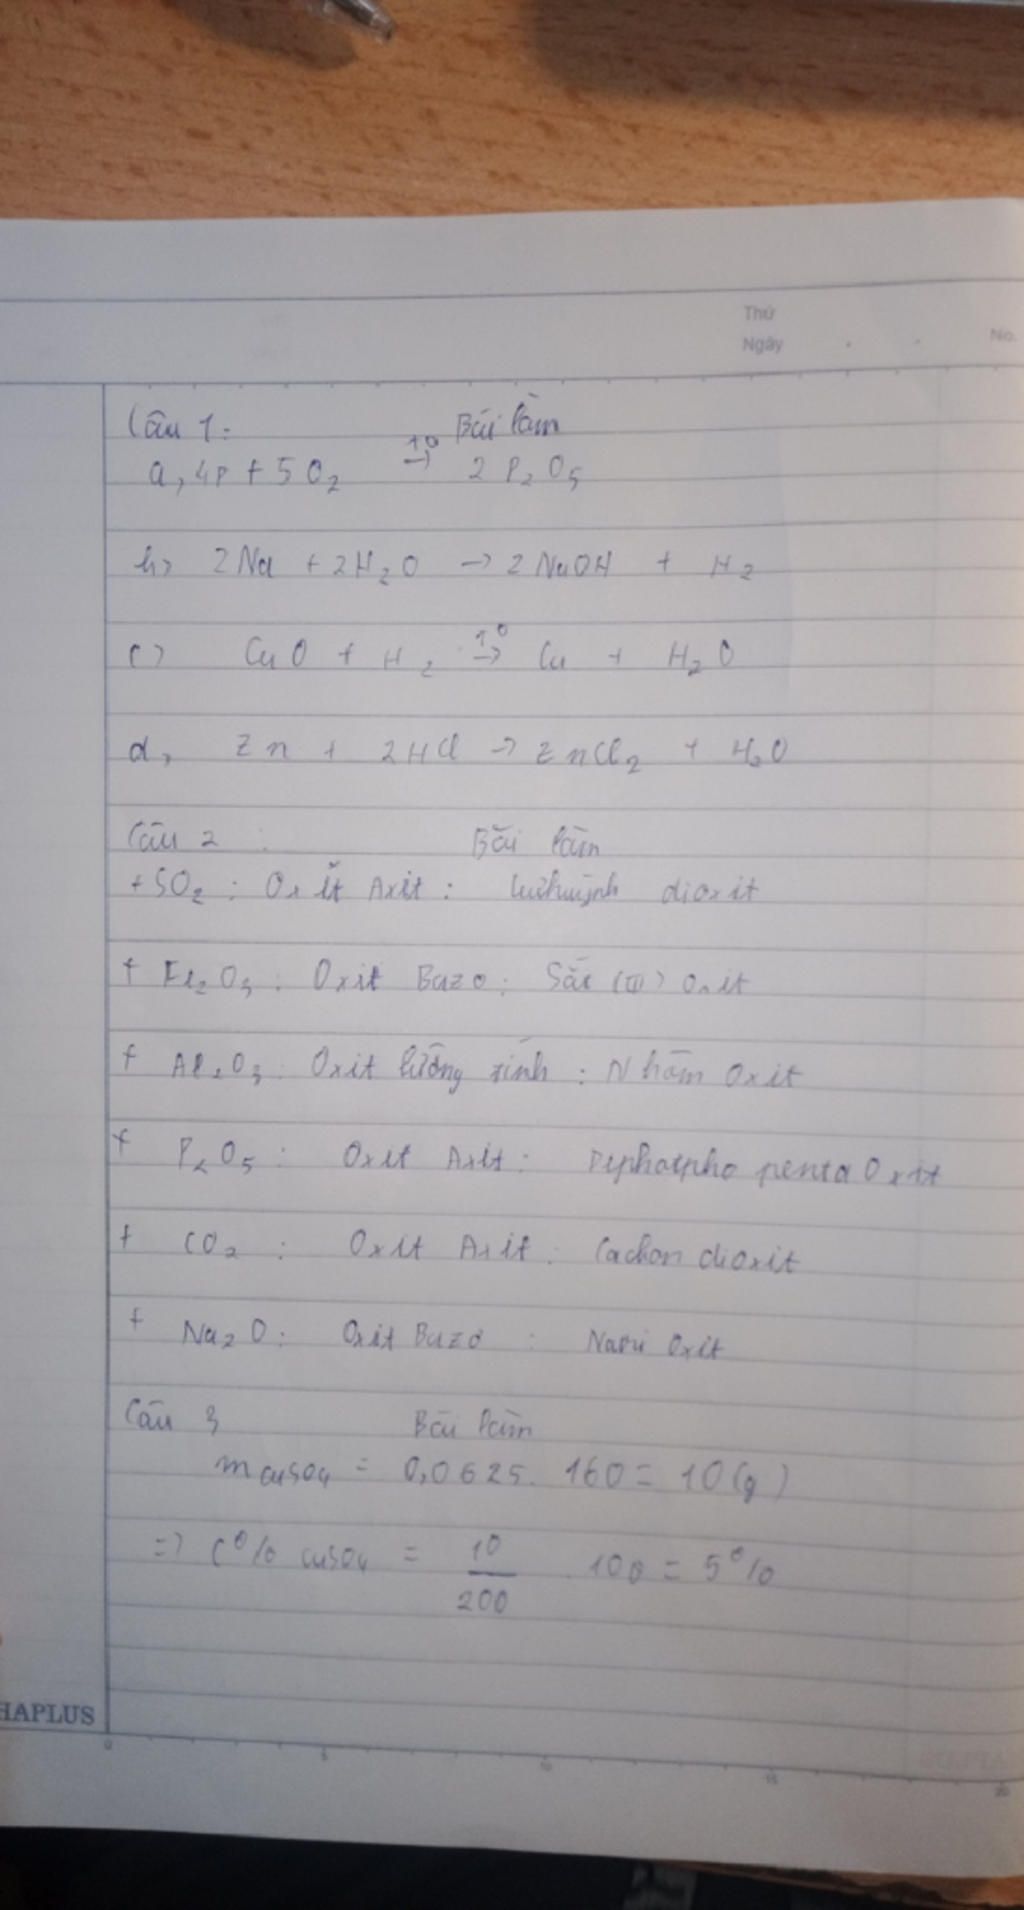 Thứ
Ngày
No.
Câu 1: Bài làm
a, 4P + 5O₂ t⁰→ 2P₂O₅
b, 2Na + 2H₂O → 2NaOH + H₂
c) CuO + H₂ t⁰→ Cu + H₂O
d, Zn + 2HCl → ZnCl₂ + H₂O
Câu 2: Bài làm
+ SO₂: Oxit Axit: lưu huỳnh dioxit
+ Fe₂O₃: Oxit Bazo: Sắt (III) Oxit
+ Al₂O₃: Oxit lưỡng tính: Nhôm Oxit
+ P₂O₅: Oxit Axit: Diphotpho penta Oxit
+ CO₂: Oxit Axit: Cacbon dioxit
+ Na₂O: Oxit Bazơ: Natri Oxit
Câu 3 Bài làm
m CuSO₄ = 0,0625 . 160 = 10 (g)
=> C% CuSO₄ = 10/200 . 100 = 5%
HAPLUS
0 5 10 15 20